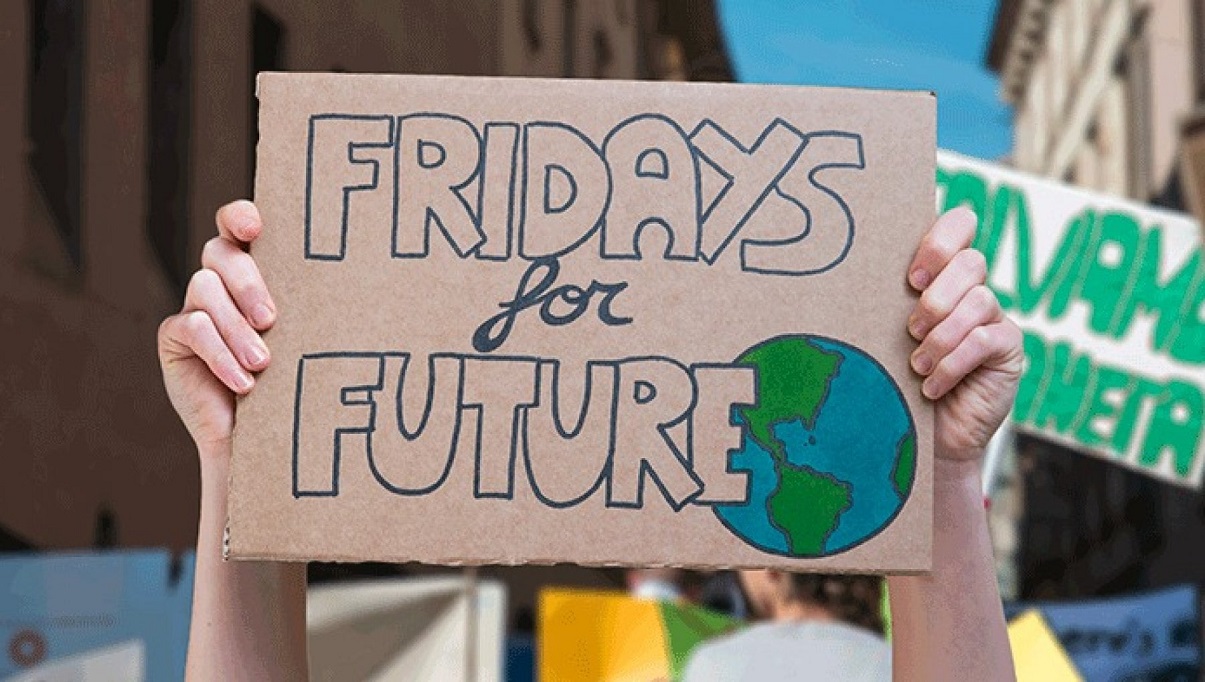 FRIDAYS
for
FUTURE
ALVIAMO
IANETA
ere's